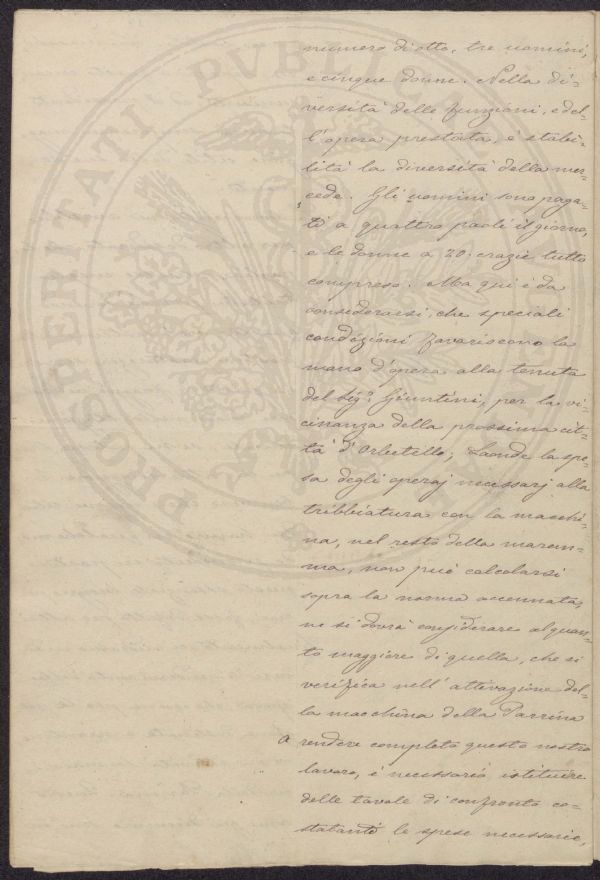 numero di otto, tre uomini,
e cinque donne. Nella di-
versità delle funzioni, e del-
l'opera prestata, è stabi-
lita la diversità della mer-
cede. Gli uomini sono paga-
ti a quattro paoli il giorno,
e le donne a 20. crazie tutto
compreso. Ma qui è da
considerarsi, che speciali
condizioni favoriscono la
mano d'opera alla tenuta
del Sigr Giuntini, per la vi-
cinanza della prossima cit-
tà d'Orbetello; Laonde la spe-
sa degli operaj necessarj alla
tribbiatura con la macchi-
na, nel resto della marem-
ma, non può calcolarsi
sopra la norma accennata,
ne si dovrà considerare alquan-
to maggiore di quella, che si
verifica nell'attivazione del-
la macchina della Parrina
A rendere completo questo nostro
lavoro, è necessario istituire
delle tavole di confronto co-
statanti le spese necessarie,
PROSPERITATI PVBLICAE